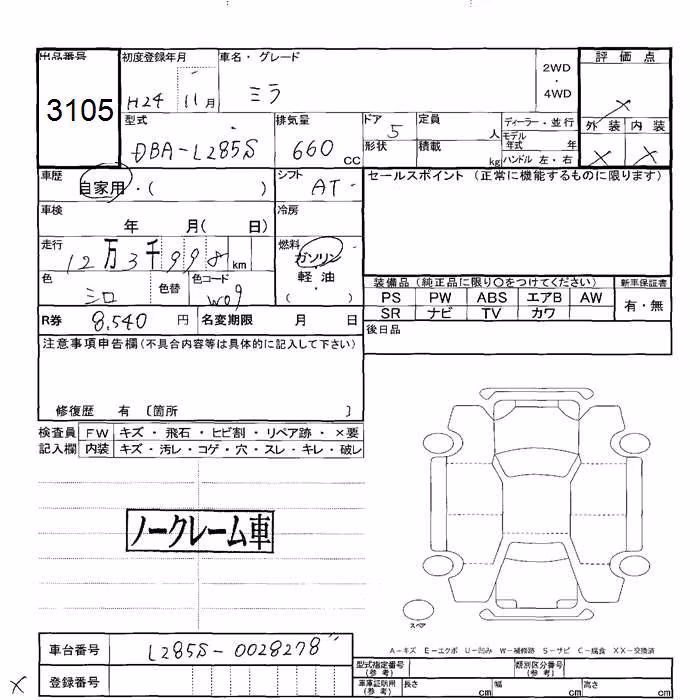 出品番号 初度登録年月 車名・グレード 評価点
3105 H24 11月 ミラ 2WD・4WD
型式 排気量 ドア 定員 ディーラー・並行 外装 内装
DBA-L285S 660cc 5 人 モデル年式 年
形状 積載 kg ハンドル 左・右
車歴 シフト セールスポイント (正常に機能するものに限ります)
自家用・( ) AT
車検 年 月( 日) 冷房
走行 12万3千998km 燃料 ガソリン 軽・油 ( )
色 シロ 色替 色コード W09
装備品 (純正品に限り〇をつけてください) 新車保証書
PS PW ABS エアB AW 有・無
SR ナビ TV カワ
R券 8,540円 名変期限 月 日 後日品
注意事項申告欄(不具合内容等は具体的に記入して下さい)
修復歴 有 〔箇所 〕
検査員 FW キズ・飛石・ヒビ割・リペア跡・×要
記入欄 内装 キズ・汚レ・コゲ・穴・スレ・キレ・破レ
ノークレーム車
スペア
A-キズ E-エクボ U-凹み W-補修跡 S-サビ C-腐食 XX-交換済
車台番号 L285S-0028278
登録番号
型式指定番号(参考) 類別区分番号(参考)
車庫証明用(参考) 長さ cm 幅 cm 高さ cm